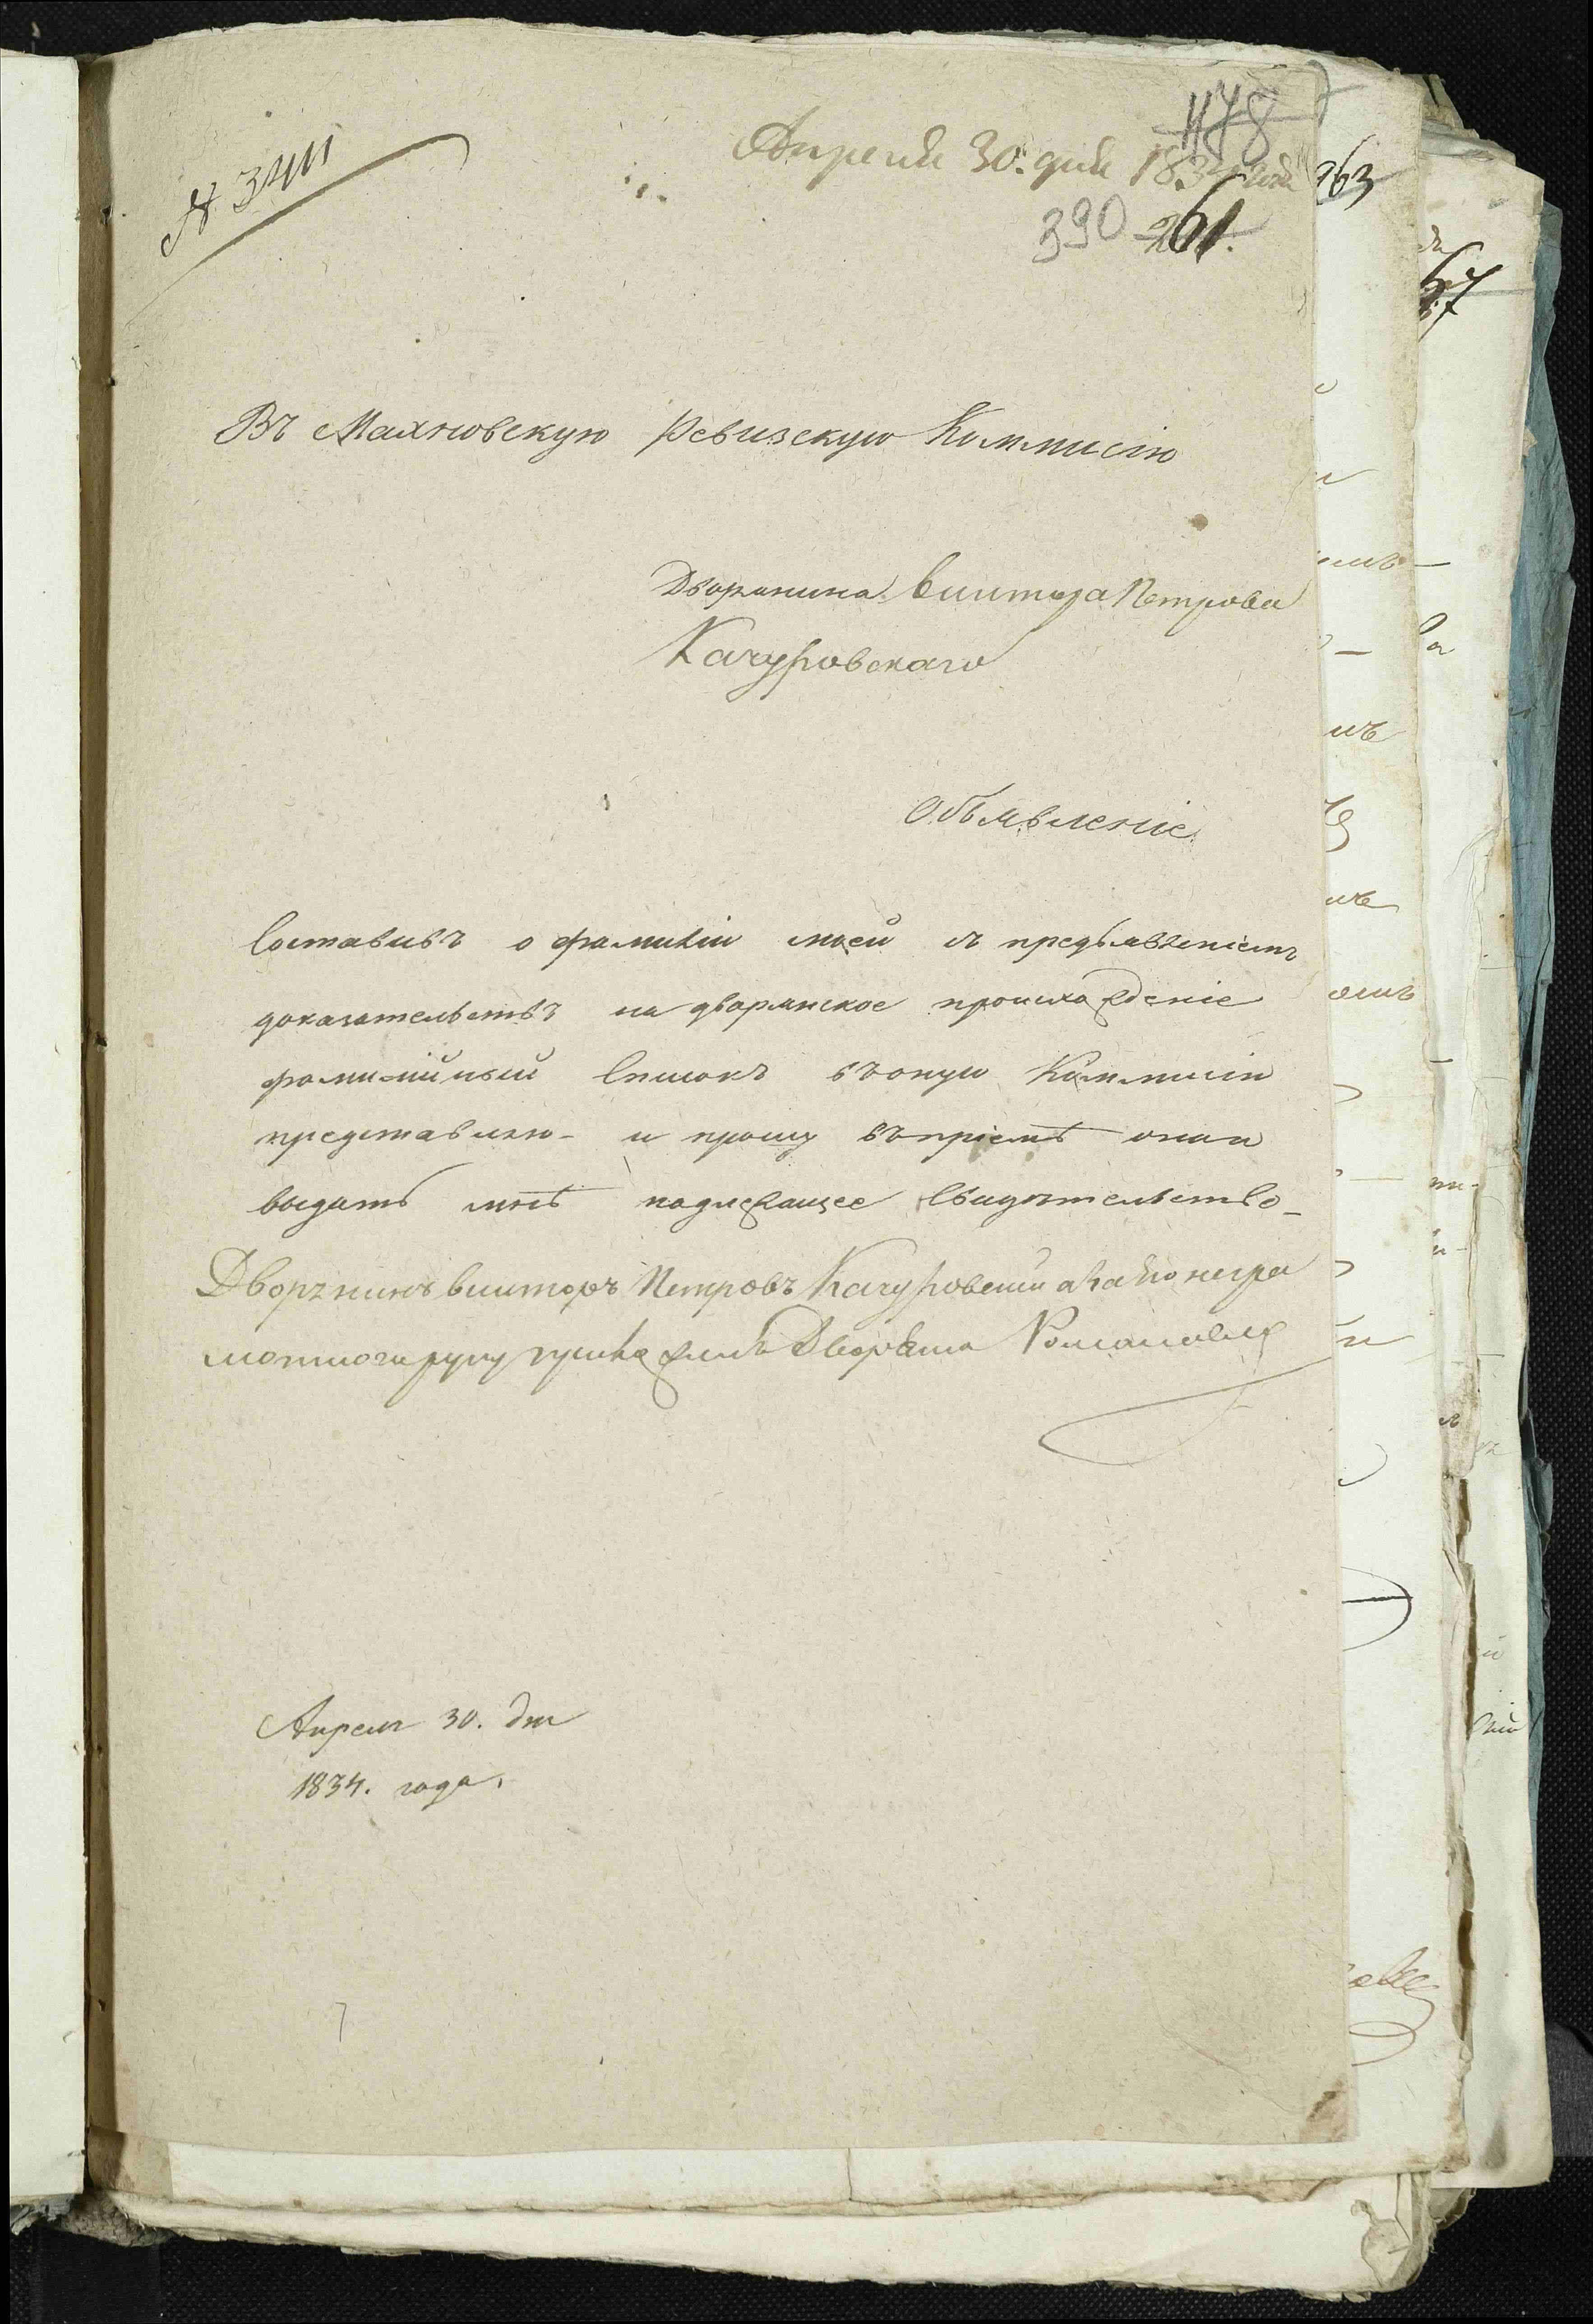 № 3411
478
Апреля 30. дня 1834 года
390 261.
Въ Махновскую Ревизскую Коммисію
Дворянина Виктора Петрова
Качуровскаго
Объявленіе
Составивъ о фамиліи моей съ предъявленіемъ
доказательствъ на дворянское происхожденіе
фамилійный Списокъ въ оную Коммисію
представляю - и прошу въ пріемѣ онаго
выдать мнѣ надлежащее Свидѣтельство -
Дворянинъ Викторъ Петровъ Качуровский а за его негра
мотного руку Дворянин
Апреля 30. дня
1834. года.
263
67